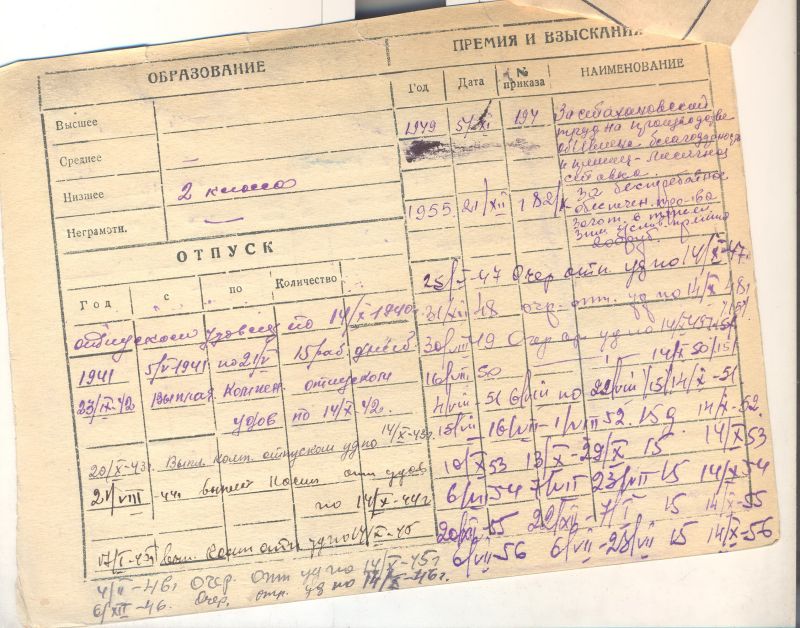 ОБРАЗОВАНИЕ
Высшее
Среднее —
Низшее 2 класса
Неграмотн. —
ОТПУСК
Год с по Количество
отпуском удовл по 14/X-1940г
1941 5/V-1941 по 21/V 15 раб. дней
23/IX-42 Выплач. компен. отпуском
удов по 14/X-42.
20/X-43г. Выпл. комп. отпуском уд по 14/X-43г.
21/VIII-44г. выплач комп. отп удов
по 14/X-44г
17/I-45г комп отп уд по 14/X-45
4/II-46г Очер. отп уд по 14/X-45г
6/XII-46. Очер. отп. уд по 14/X-46г.
ПРЕМИЯ И ВЗЫСКАНИ
Год Дата № приказа НАИМЕНОВАНИЕ
1949 5/XI 194 За стахановский
труд на производстве
объявлена благодарность
и месячной
ставка
1955 21/XII 182/к За бесперебойное
обеспечен. про-ва
загот. в
зим услов. премия
25/X-47 Очер отп. уд по 14/X-47.
31/XII-48 Очер. отп. уд по 14/X-48
30/VIII-49 Очер отп уд по 14/X-49г
16/VII 50 14/X 50/15/
4/VIII-51 6/VIII по 22/VIII/15/14/X-51
15/VII 16/VII-1/VIII 52. 15 д 14/X-52.
10/X 53 13/X-29/X 15 14/X 53
6/VII 54 7/VII 23/VII 15 14/X 54
20/XII-55 22/XII 7/I 15 14/X-55
6/VII-56 6/VII-23/VII 15 14/X-56